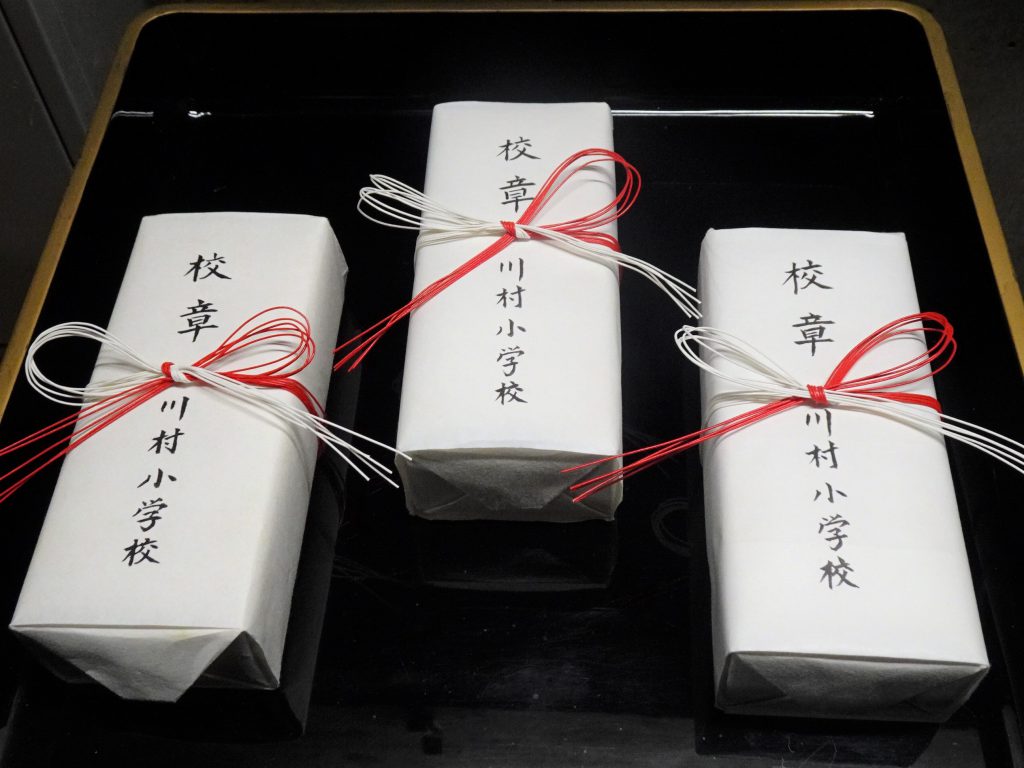 校章
川村小学校
校章
川村小学校
校章
川村小学校